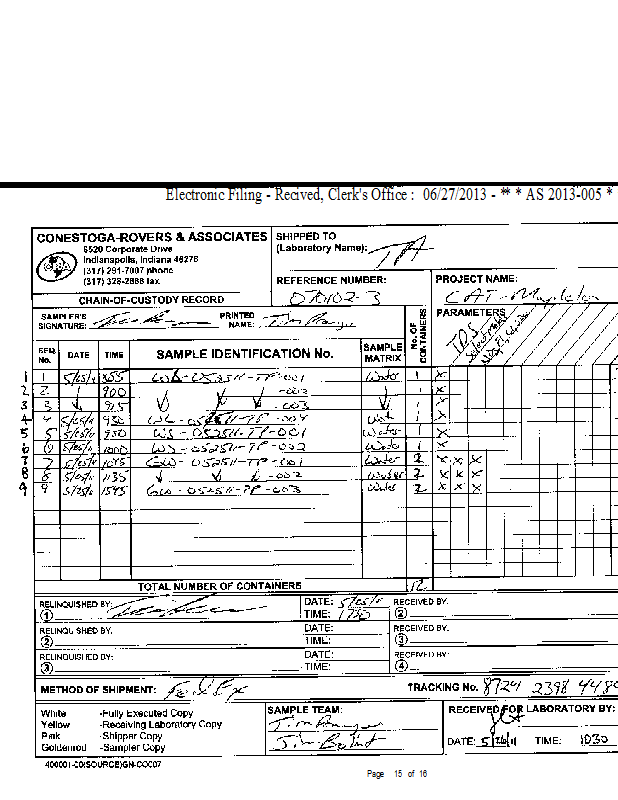 Electronic Filing - Recived, Clerk's Office : 06/27/2013 - * * * AS 2013-005 *
CONESTOGA-ROVERS & ASSOCIATES
6520 Corporate Drive
Indianapolis, Indiana 46278
(317) 291-7007 phone
(317) 328-2666 fax
SHIPPED TO
(Laboratory Name): TA
REFERENCE NUMBER:
PROJECT NAME:
CAT - Mapleton
CHAIN-OF-CUSTODY RECORD
SAMPLER'S
SIGNATURE:
PRINTED
NAME:
No. OF
CONTAINERS
PARAMETERS
TDS
SEQ.
No. DATE TIME SAMPLE IDENTIFICATION No. SAMPLE
MATRIX
1 1 5/25/11 855 WL-052511-TP-001 Water 1 X
2 2 900 -002 1 X
3 3 915 -003 1 X
4 4 5/25/11 930 WL-052511-TP-004 Water 1 X
5 5 5/25/11 950 WS-052511-TP-001 Water 1 X
6 6 5/25/11 1000 WS-052511-TP-002 Water 1 X
7 7 5/25/11 1045 GW-052511-TP-001 Water 2 X X X
8 8 5/25/11 1135 -002 Water 2 X X X
9 9 5/25/11 1545 GW-052511-TP-003 Water 2 X X X
TOTAL NUMBER OF CONTAINERS 12
RELINQUISHED BY:
1
DATE: 5/25/11
TIME: 1730
RECEIVED BY:
2
RELINQUISHED BY:
2
DATE:
TIME:
RECEIVED BY:
3
RELINQUISHED BY:
3
DATE:
TIME:
RECEIVED BY:
4
METHOD OF SHIPMENT: Fed Ex
TRACKING No. 8724 2398 4480
White -Fully Executed Copy
Yellow -Receiving Laboratory Copy
Pink -Shipper Copy
Goldenrod -Sampler Copy
SAMPLE TEAM:
Jim Belint
RECEIVED FOR LABORATORY BY:
DATE: 5/26/11 TIME: 1030
400001-00(SOURCE)GN-COC07
Page 15 of 16